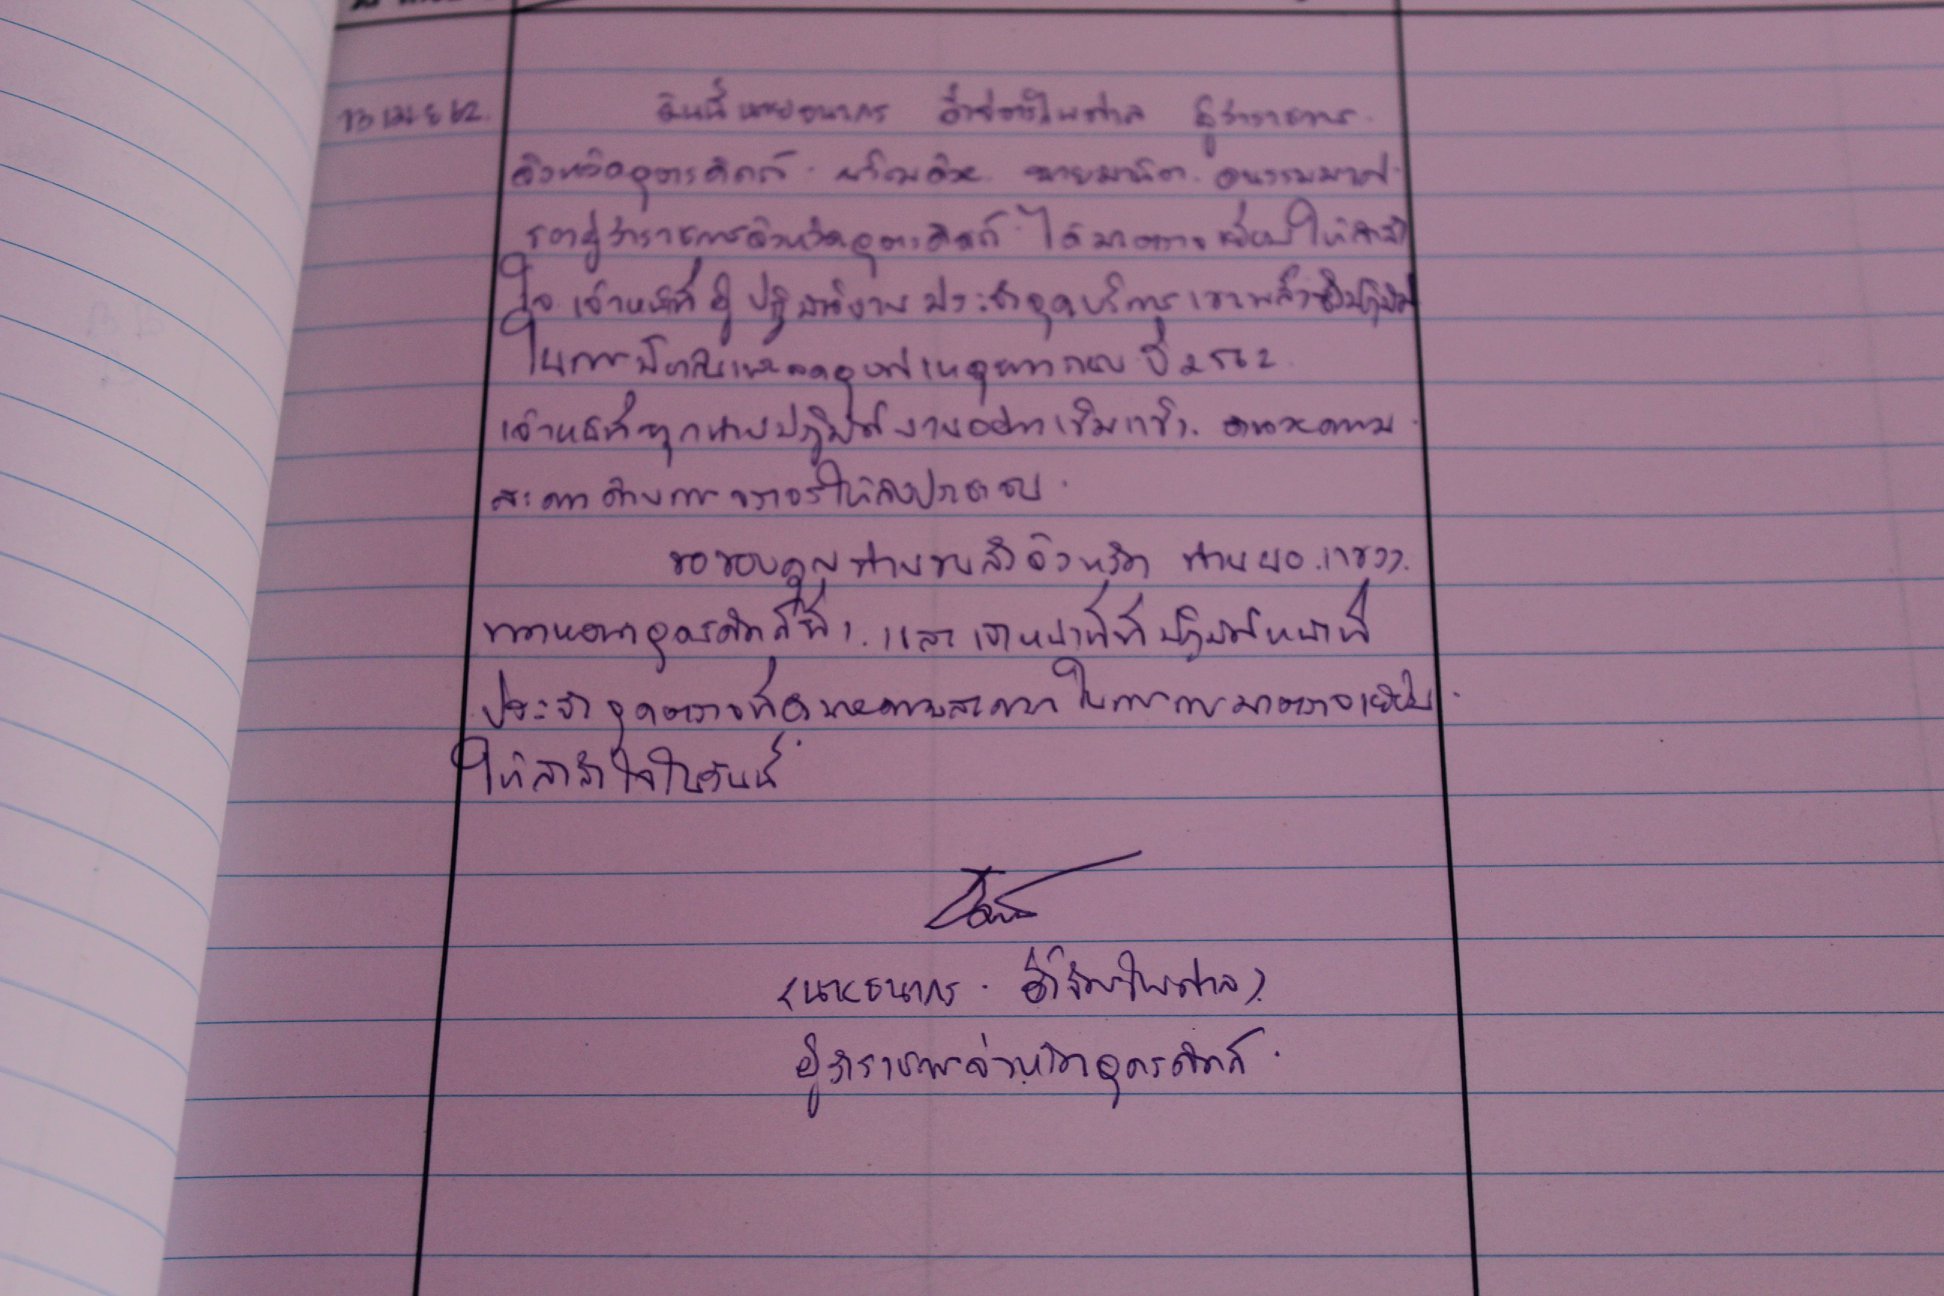 13 เม.ย 62. วันนี้ นายธนากร อึ้งจิตรไพศาล ผู้ว่าราชการ
จังหวัดอุตรดิตถ์ พร้อมด้วย นายมานิต อนรรฆมาศ
รองผู้ว่าราชการจังหวัดอุตรดิตถ์ ได้มาตรวจเยี่ยมให้กำลัง
ใจ เจ้าหน้าที่ ผู้ปฏิบัติงาน ประจำจุดบริการ
ในการป้องกันและลดอุบัติเหตุทางถนน ปี 2562
เจ้าหน้าที่ทุกนายปฏิบัติงานอย่างเข้มแข็ง. อำนวยความ
สะดวกด้านการจราจรให้กับประชาชน.
ขอขอบคุณท่านขนส่งจังหวัด ท่าน ผอ.แขวง.
ทางหลวงอุตรดิตถ์ที่ 1. และเจ้าหน้าที่ที่ปฏิบัติหน้าที่
ประจำจุดตรวจที่อำนวยความสะดวกในการมาตรวจเยี่ยม
ให้กำลังใจในวันนี้
(นายธนากร อึ้งจิตรไพศาล)
ผู้ว่าราชการจังหวัดอุตรดิตถ์.